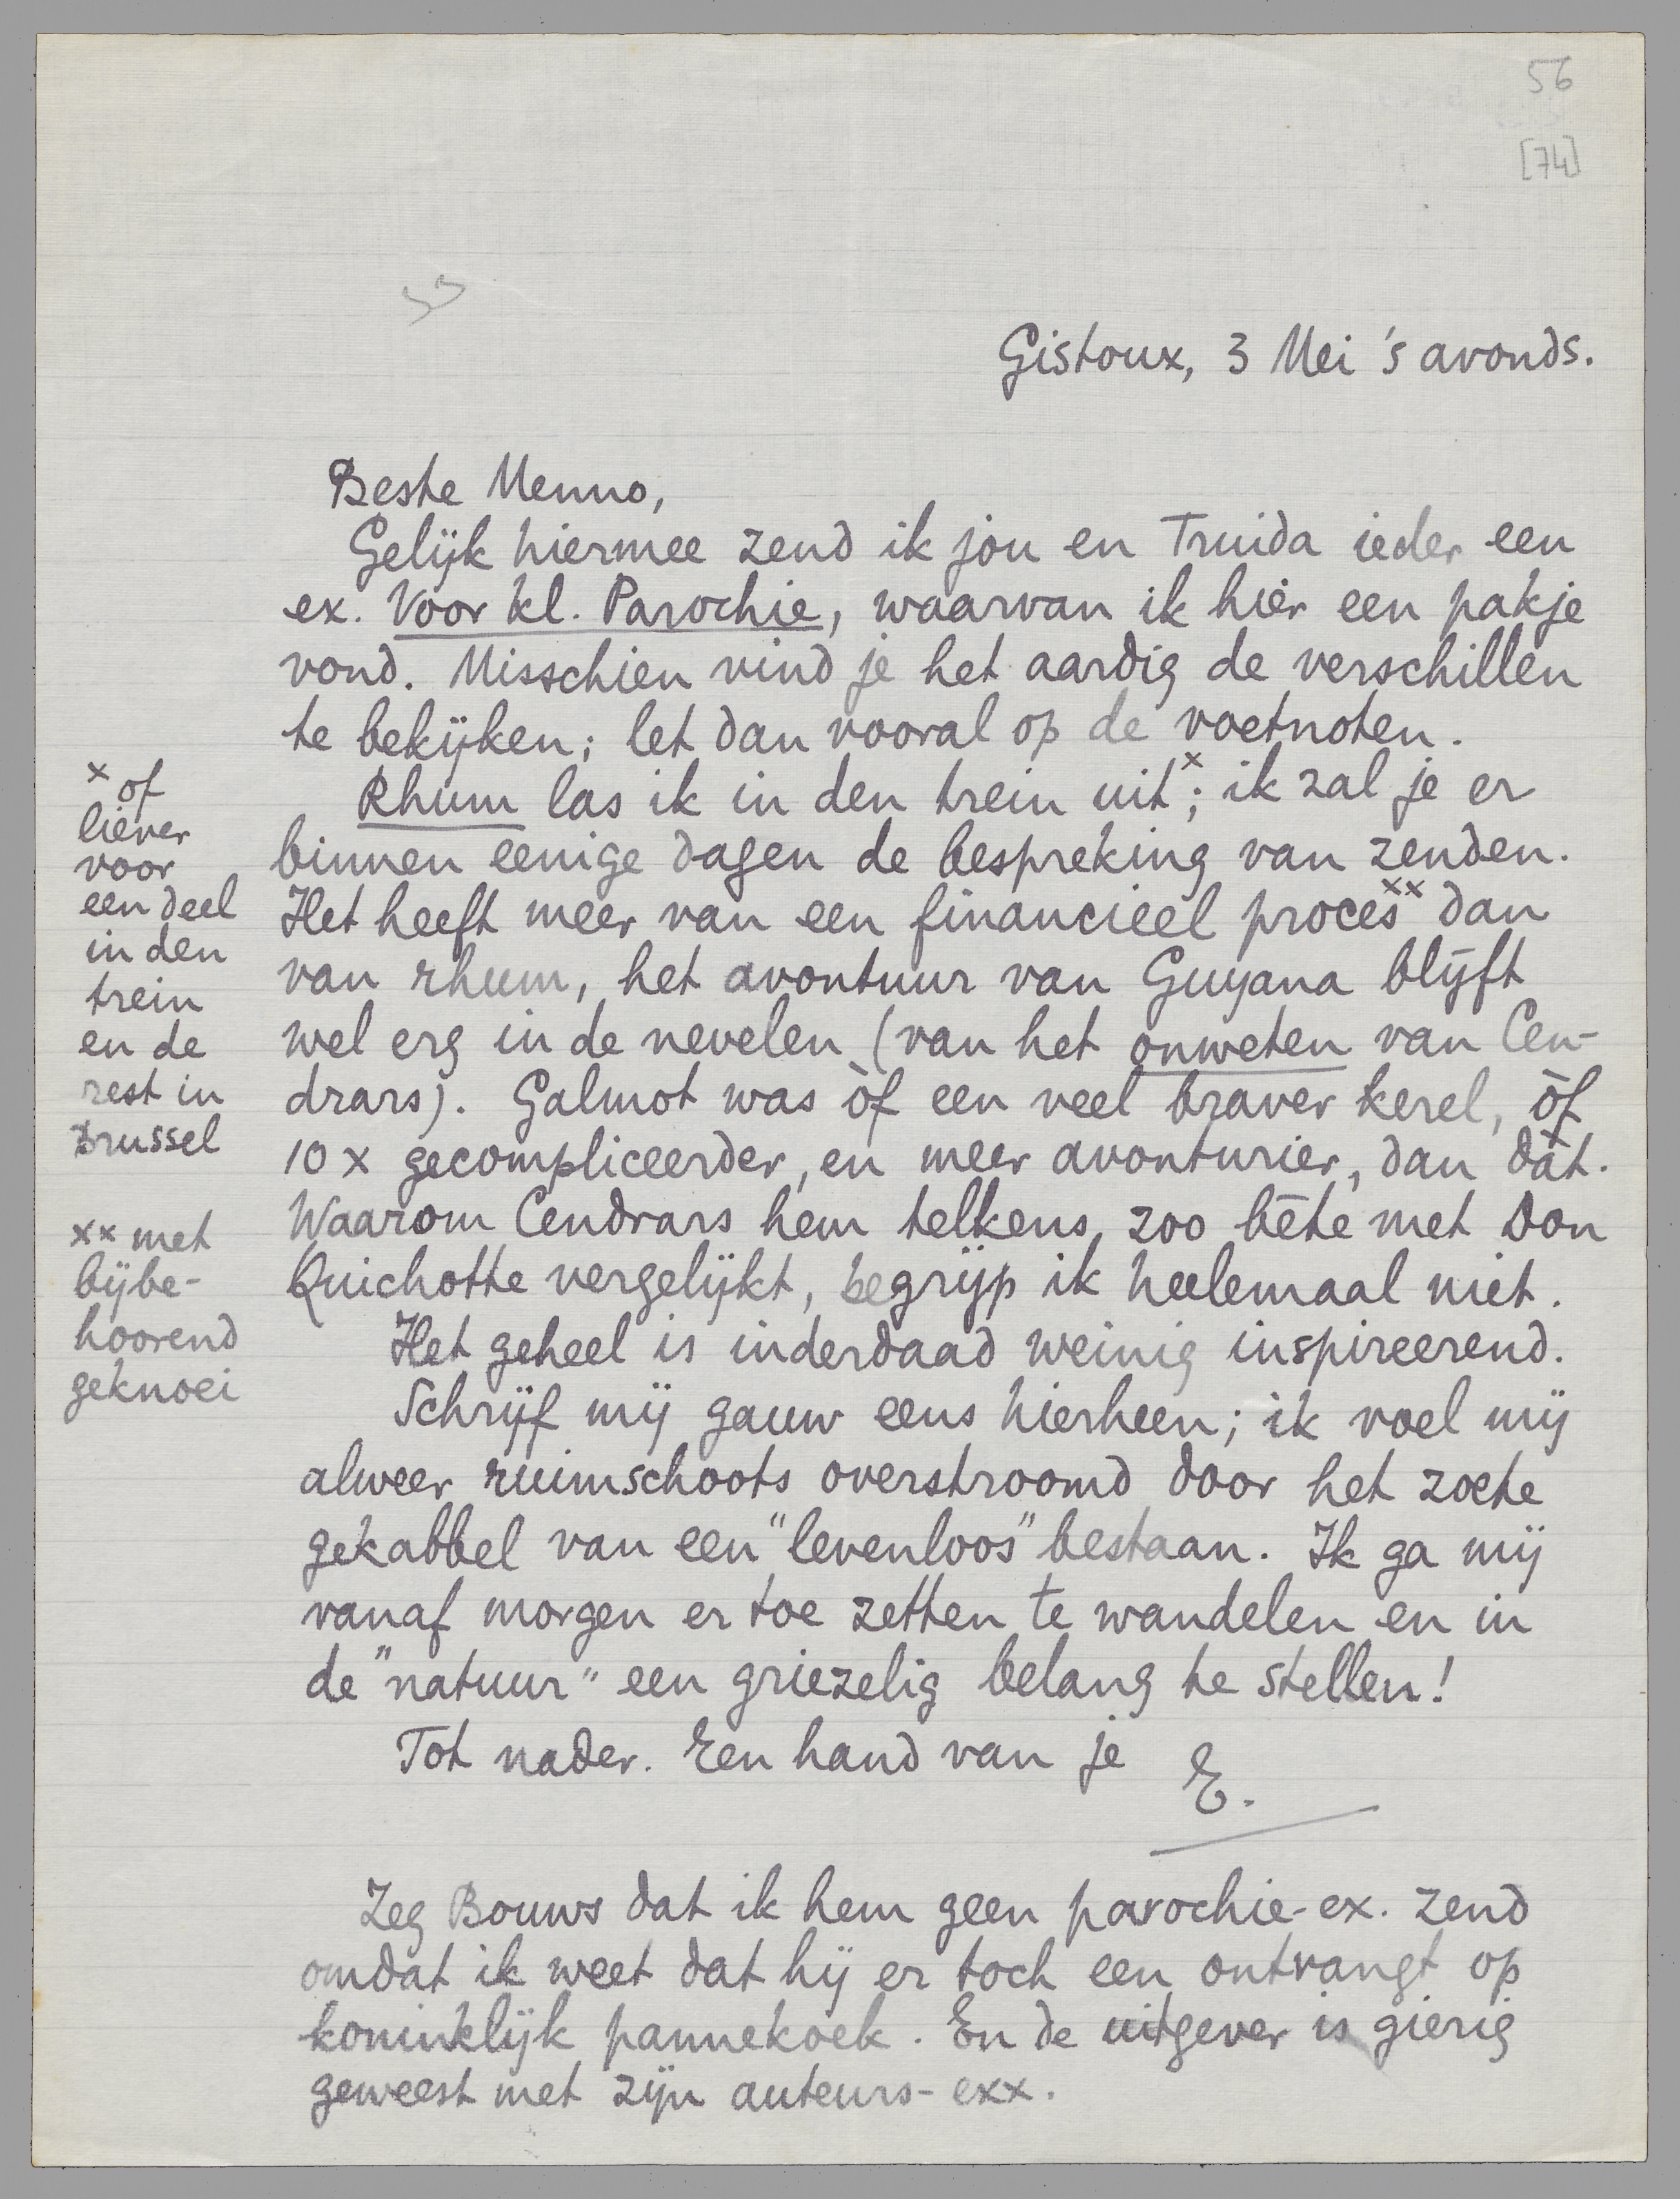 56
[74]
Gistoux, 3 Mei 's avonds.
Beste Menno,
Gelijk hiermee zend ik jou en Truida ieder een
ex. Voor kl. Parochie, waarvan ik hier een pakje
vond. Misschien vind je het aardig de verschillen
te bekijken; let dan vooral op de voetnoten.
Rhum las ik in den trein uit x; ik zal je er
binnen eenige dagen de bespreking van zenden.
Het heeft meer van een financieel proces xx dan
van rhum, het avontuur van Guyana blijft
wel erg in de nevelen (van het onweten van Cen-
drars). Galmot was òf een veel braver kerel, òf
10 x gecompliceerder, en meer avonturier, dan dàt.
Waarom Cendrars hem telkens zoo bête met Don
Quichotte vergelijkt, begrijp ik heelemaal niet.
Het geheel is inderdaad weinig inspireerend.
Schrijf mij gauw eens hierheen; ik voel mij
alweer ruimschoots overstroomd door het zoete
gekabbel van een "levenloos" bestaan. Ik ga mij
vanaf morgen er toe zetten te wandelen en in
de "natuur" een griezelig belang te stellen!
Tot nader. Een hand van je
E.
x of
liever
voor
een deel
in den
trein
en de
rest in
Brussel
xx met
bijbe-
hoorend
geknoei
Zeg Bouws dat ik hem geen parochie-ex. zend
omdat ik weet dat hij er toch een ontvangt op
koninklijk pannekoek. En de uitgever is gierig
geweest met zijn auteurs-exx.